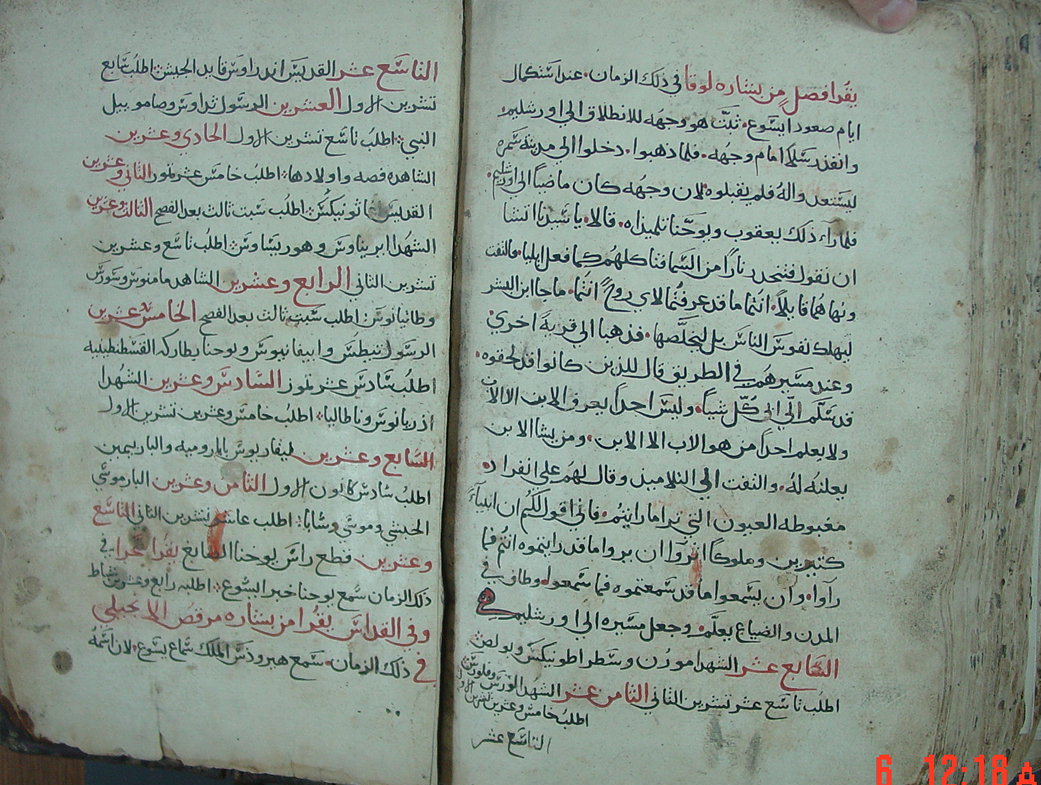 يقرا فصل من بشاره لوقا في ذلك الزمان. عند استكمال
ايام صعود ايسوع. ثبت هو وجهه للانطلاق الي اورشليم.
وانفذ رسلا امام وجهه. فلما ذهبوا. دخلوا الي مدينة
ليستعد واله فلم يقبلوه لان وجهه كان ماضيا الي اورشليم.
فلما راء ذلك يعقوب ويوحنا تلميذاه. قالا. يا سيدنا اتشا
ان نقول فتنحدر نارا من السما فتاكلهم كما فعل ايليا. فالتفت
ونهاهما قايلا. انتما ما قد عرفتما لاي روح انتما. ما جا ابن البشر
ليهلك نفوس الناس بل ليخلصها. فذهبا الي قرية اخري.
وعند مسيرهم في الطريق قال للذين كانوا قد لحقوه.
قد سلم الي ابي كل شيا. وليس احدا يعرف الابن الا الاب
ولا يعلم احدا من هو الاب الا الابن. ومن يشا الابن
يعلنه له. والتفت الي التلاميذ وقال لهم علي انفراد.
مغبوطه العيون التي ترا ما رايتم. فاني اقول لكم ان انبياء
كثيرين وملوكا اثروا ان يروا ما قد رايتموه انتم فما
راوا. وان يسمعوا ما قد سمعتموه فما سمعوا. وطاف في
المدن والضياع يعلم. وجعل مسيره الي اورشليم
السابع عشر الشهدا
اطلب تاسع عشر تشرين الثاني الثامن عشر الشهدا
اطلب خامس وعشرين تشرين الاول
التاسع عشر
التاسع عشر القديس اندراوس قايد الجيش اطلب سابع
تشرين الاول العشرين الرسول ثداوس وصامويل
النبي: اطلب تاسع تشرين الاول الحادي وعشرين
الشاهده فصه واولادها: اطلب خامس عشر تموز الثاني وعشرين
القديس اغاثونيكس: اطلب سبت ثالث بعد الفصح الثالث وعشرين
الشهدا ايريناوس وهوريساوس: اطلب تاسع وعشرين
تشرين الثاني الرابع وعشرين الشاهد
وطاتيانوس: اطلب سبت ثالث بعد الفصح الخامس وعشرين
الرسول تيطس وابيفانيوس ويوحنا بطاركه القسطنطينيه
اطلب سادس عشر تموز السادس وعشرين الشهدا
ادريانوس وناطاليا: اطلب خامس وعشرين تشرين الاول
السابع وعشرين ليفاريوس باباروميه والبار بيمين
اطلب سادس كانون الاول الثامن وعشرين البار موسي
الحبشي وموسي وسابا: اطلب عاشر تشرين الثاني التاسع
وعشرين قطع راس يوحنا الصابغ يقرا سحرا في
ذلك الزمان سمع يوحنا خبر ايسوع: اطلبه رابع وعشرين شباط
وفي القداس يقرا من بشاره مرقص الانجيلي
في ذلك الزمان. سمع هيرودس الملك سماع يسوع. لان اسمه
6 12:16